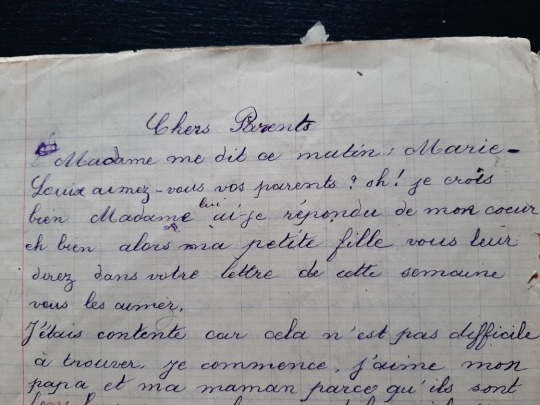 Chers Parents
Madame me dit ce matin, Marie-
Louise aimez-vous vos parents ? oh ! je crois
bien Madame lui ai-je répondu de mon coeur
eh bien alors ma petite fille vous leur
direz dans votre lettre de cette semaine
vous les aimer.
J'étais contente car cela n'est pas difficile
à trouver. je commence. j'aime mon
papa et ma maman parce qu'ils sont